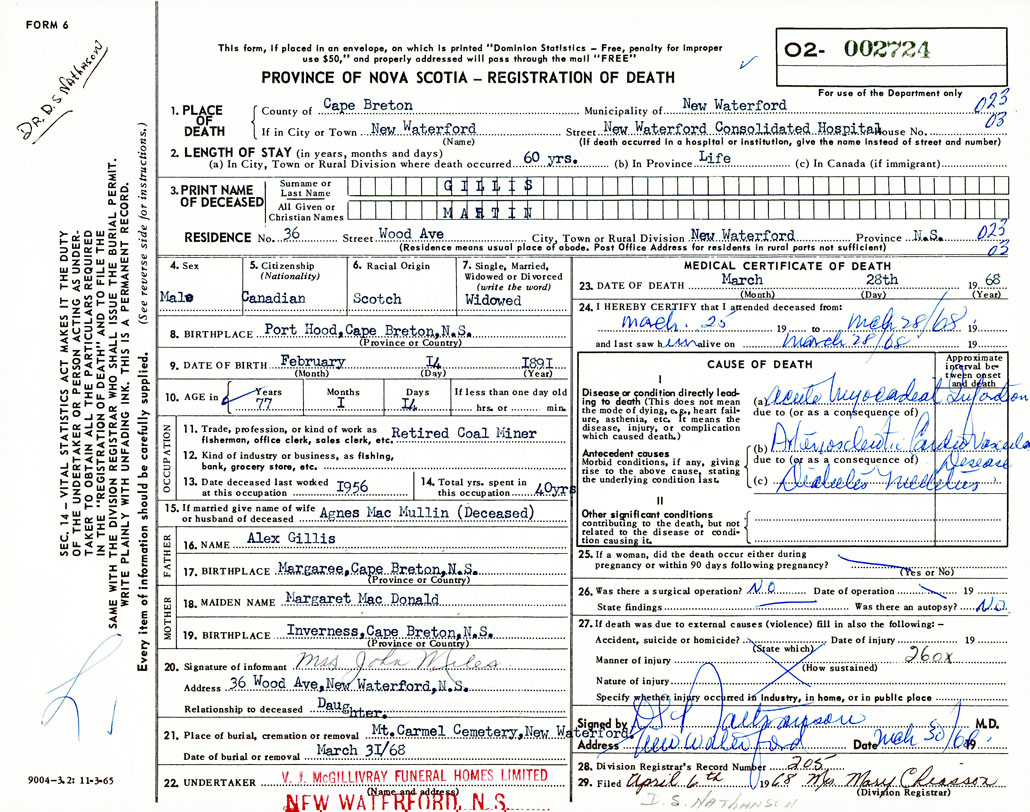 FORM 6
DR. D. S. NATHANSON
This form, if placed in an envelope, on which is printed "Dominion Statistics – Free, penalty for improper
use $50," and properly addressed will pass through the mail "FREE"
PROVINCE OF NOVA SCOTIA – REGISTRATION OF DEATH
O2- 002724
For use of the Department only
SEC. 14 – VITAL STATISTICS ACT MAKES IT THE DUTY
OF THE UNDERTAKER OR PERSON ACTING AS UNDER-
TAKER TO OBTAIN ALL THE PARTICULARS REQUIRED
IN THE "REGISTRATION OF DEATH" AND TO FILE THE
SAME WITH THE DIVISION REGISTRAR WHO SHALL ISSUE THE BURIAL PERMIT.
WRITE PLAINLY WITH UNFADING INK. THIS IS A PERMANENT RECORD.
Every item of information should be carefully supplied. (See reverse side for instructions.)
1. PLACE OF DEATH County of Cape Breton Municipality of New Waterford 023
If in City or Town New Waterford Street New Waterford Consolidated Hospital House No. 03
(Name) (If death occurred in a hospital or institution, give the name instead of street and number)
2. LENGTH OF STAY (in years, months and days)
(a) In City, Town or Rural Division where death occurred 60 yrs. (b) In Province Life (c) In Canada (if immigrant)
3. PRINT NAME OF DECEASED Surname or Last Name GILLIS
All Given or Christian Names MARTIN
RESIDENCE No. 36 Street Wood Ave City, Town or Rural Division New Waterford Province N.S. 023
(Residence means usual place of abode. Post Office Address for residents in rural parts not sufficient) 03
4. Sex Male
5. Citizenship (Nationality) Canadian
6. Racial Origin Scotch
7. Single, Married, Widowed or Divorced (write the word) Widowed
8. BIRTHPLACE Port Hood,Cape Breton,N.S.
(Province or Country)
9. DATE OF BIRTH February I4 I89I
(Month) (Day) (Year)
10. AGE in Years 77 Months I Days I4 If less than one day old hrs. or min.
OCCUPATION
11. Trade, profession, or kind of work as fisherman, office clerk, sales clerk, etc. Retired Coal Miner
12. Kind of industry or business, as fishing, bank, grocery store, etc.
13. Date deceased last worked at this occupation I956
14. Total yrs. spent in this occupation 40yrs
15. If married give name of wife or husband of deceased Agnes Mac Mullin (Deceased)
FATHER
16. NAME Alex Gillis
17. BIRTHPLACE Margaree,Cape Breton,N.S.
(Province or Country)
MOTHER
18. MAIDEN NAME Margaret Mac Donald
19. BIRTHPLACE Inverness,Cape Breton,N.S.
(Province or Country)
20. Signature of informant Mrs John Miles
Address 36 Wood Ave,New Waterford,N.S.
Relationship to deceased Daughter.
21. Place of burial, cremation or removal Mt.Carmel Cemetery,New Waterford.
Date of burial or removal March 3I/68
22. UNDERTAKER V. J. McGILLIVRAY FUNERAL HOMES LIMITED
(Name and address)
NEW WATERFORD, N.S.
9004-3.2: 11-3-65
MEDICAL CERTIFICATE OF DEATH
23. DATE OF DEATH March 28th 19 68
(Month) (Day) (Year)
24. I HEREBY CERTIFY that I attended deceased from:
March 25 19 to Mch 28/68 19
and last saw him alive on March 28/68 19
CAUSE OF DEATH
Approximate interval between onset and death
I
Disease or condition directly leading to death (This does not mean the mode of dying, e.g., heart failure, asthenia, etc. It means the disease, injury, or complication which caused death.)
(a) acute Myocardial Infarction
due to (or as a consequence of)
Antecedent causes
Morbid conditions, if any, giving rise to the above cause, stating the underlying condition last.
(b) Arteriosclerotic Cardio Vascular Disease
due to (or as a consequence of)
(c) Diabetes Mellitus
II
Other significant conditions
contributing to the death, but not related to the disease or condition causing it.
25. If a woman, did the death occur either during
pregnancy or within 90 days following pregnancy?
(Yes or No)
26. Was there a surgical operation? NO Date of operation 19
State findings Was there an autopsy? NO.
27. If death was due to external causes (violence) fill in also the following: –
Accident, suicide or homicide? Date of injury 19
(State which)
Manner of injury 260X
(How sustained)
Nature of injury
Specify whether injury occurred in industry, in home, or in public place
Signed by D S Nathanson M.D.
Address New Waterford Date Mch 30/68 19
28. Division Registrar's Record Number 205
29. Filed April 6th 1968 Mrs Mary Chiasson
(Division Registrar)
D. S. NATHANSON